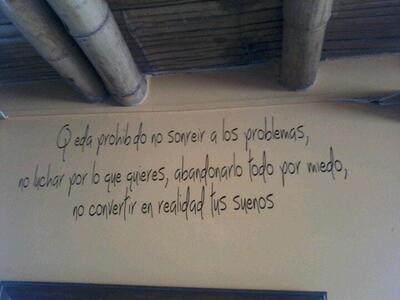 Q eda prohib do no sonreir a los problemas,
no luchar por lo que quieres, abandonarlo todo por miedo,
no convertir en realidad tus suenos